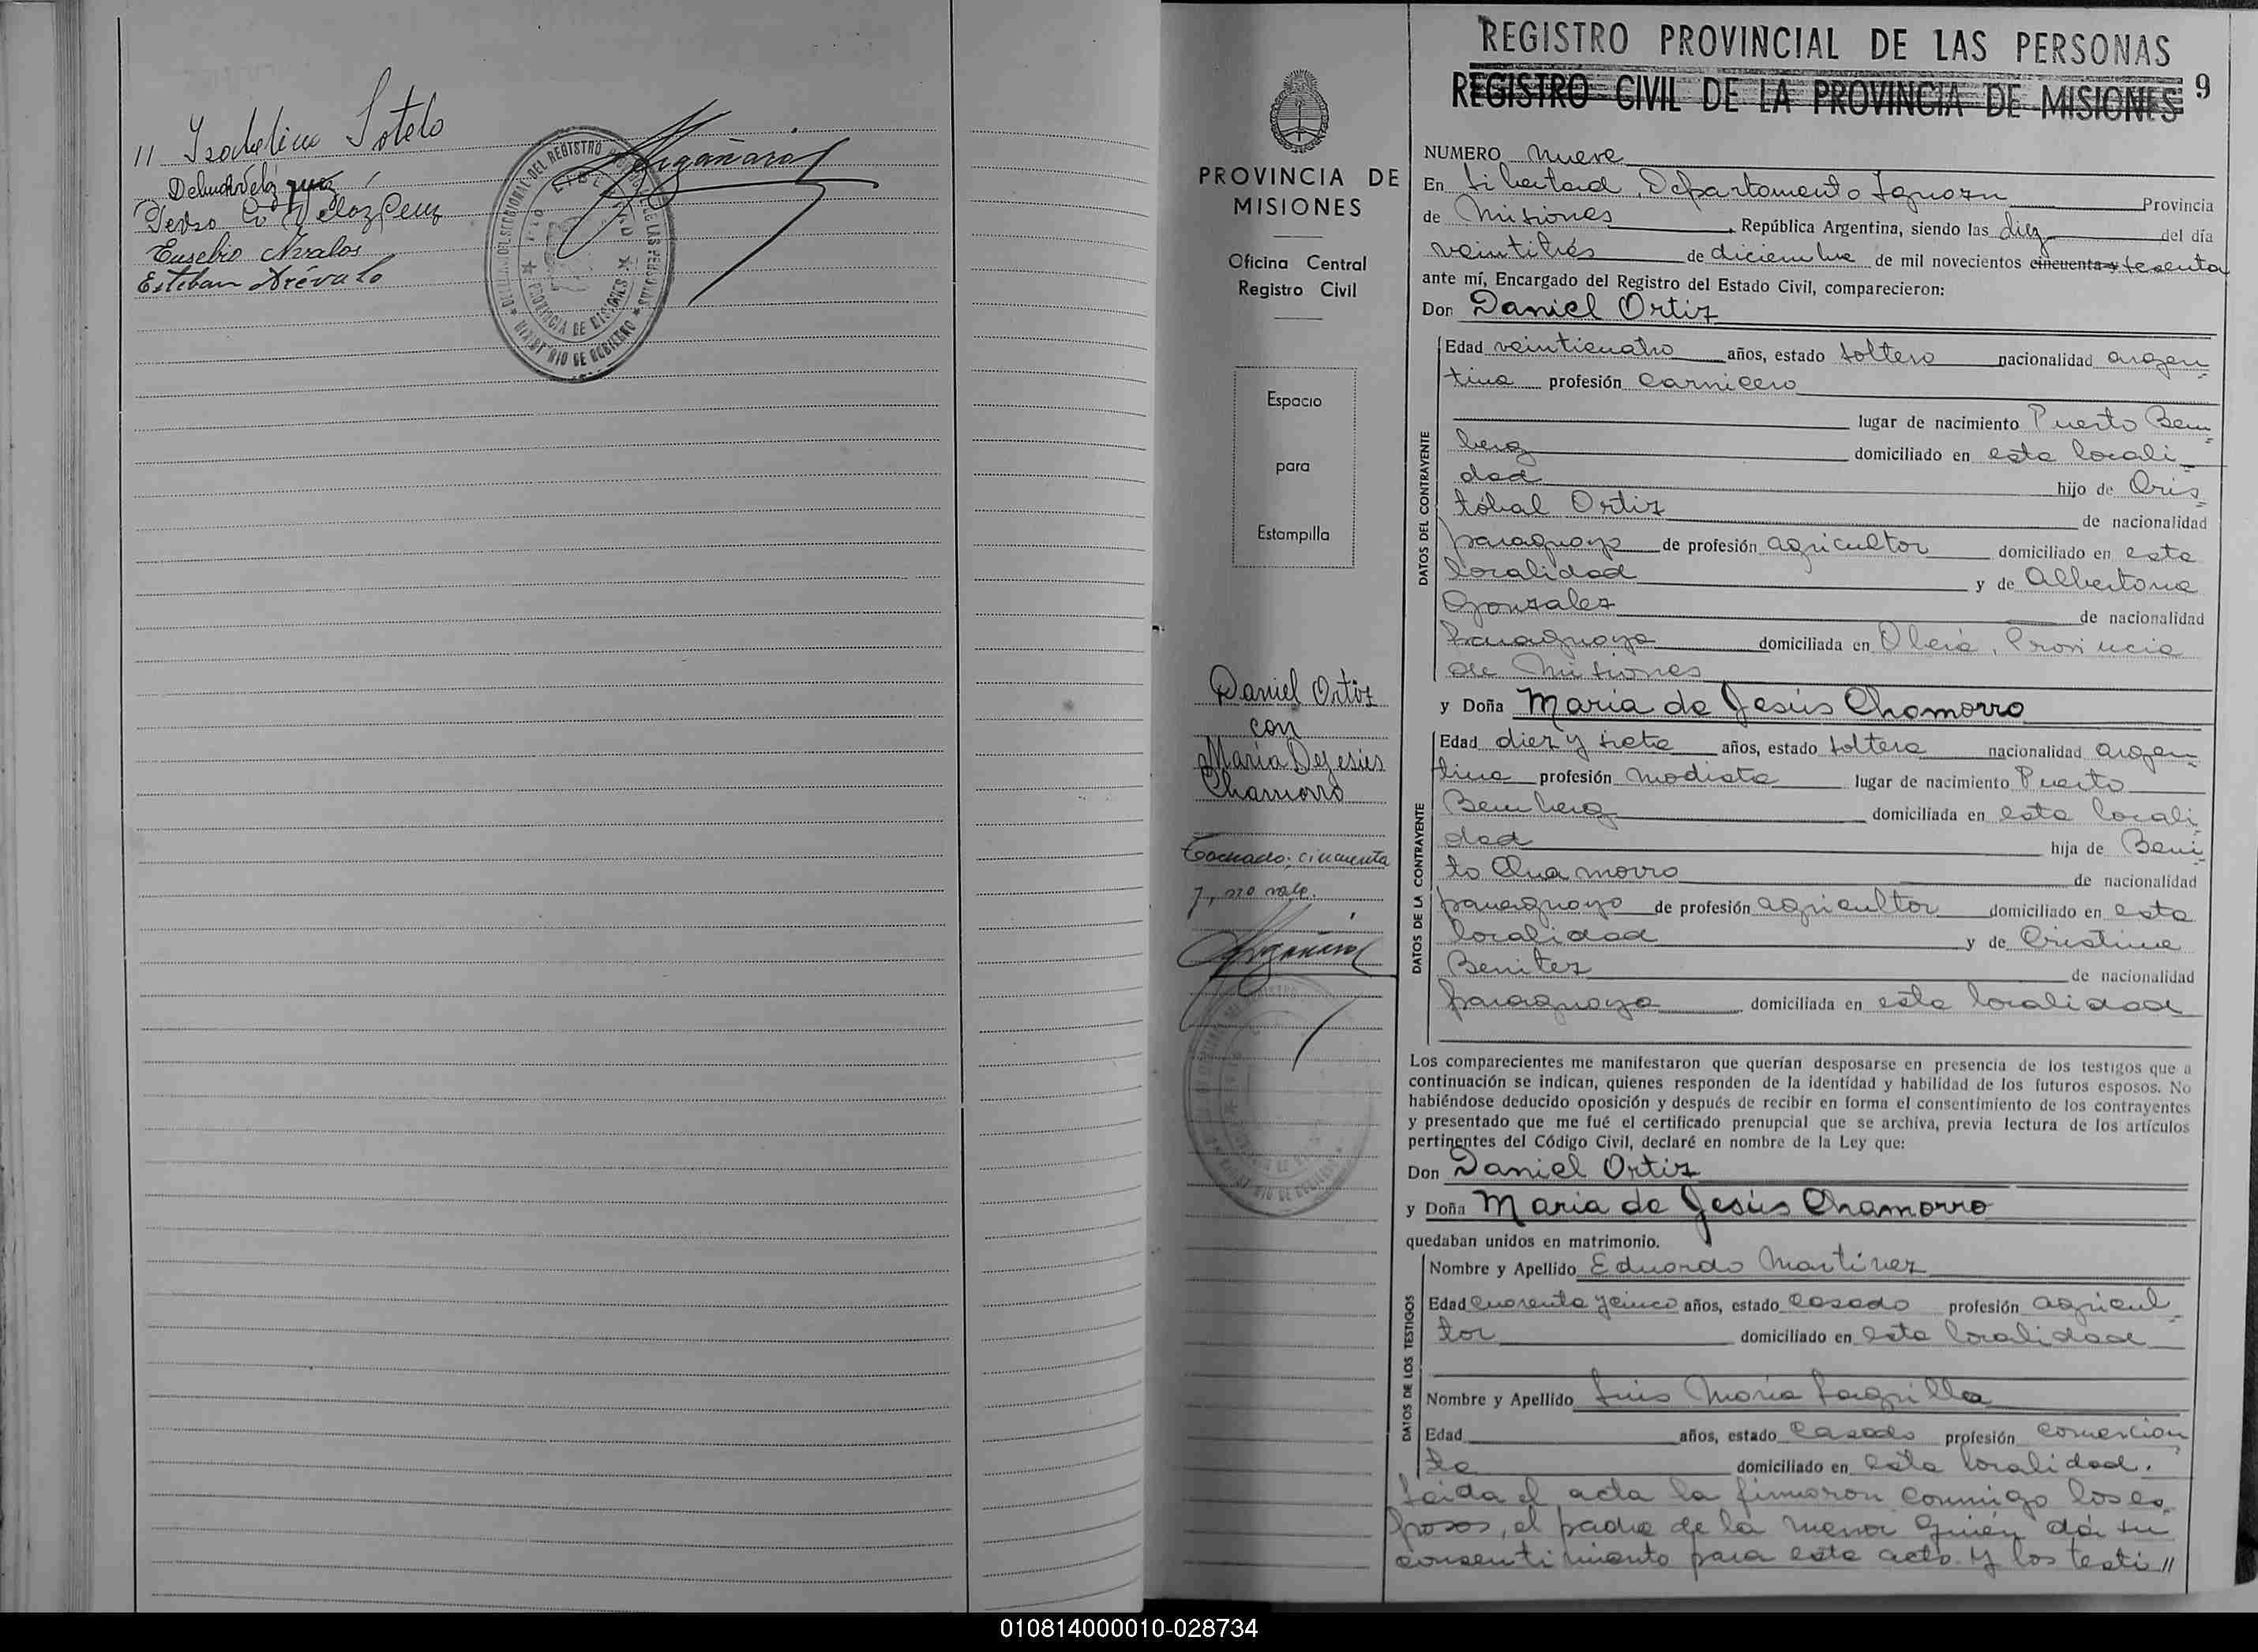 11 Isabelino Sotelo
Eusebio Avalos
Esteban Arévalo
REGISTRO PROVINCIAL DE LAS PERSONAS
REGISTRO CIVIL DE LA PROVINCIA DE MISIONES 9
PROVINCIA DE
MISIONES
Oficina Central
Registro Civil
Espacio
para
Estampilla
Daniel Ortiz
con
María Dejesús
Chamorro
Tachado: cincuenta
y, no vale.
NUMERO nueve
En Libertad, Departamento Iguazu Provincia
de Misiones, República Argentina, siendo las diez del día
veintitrés de diciembre de mil novecientos cincuenta y sesenta
ante mí, Encargado del Registro del Estado Civil, comparecieron:
Don Daniel Ortiz
DATOS DEL CONTRAYENTE
Edad veinticuatro años, estado soltero nacionalidad argen
tina profesión carnicero
lugar de nacimiento Puerto Bem
berg domiciliado en esta locali
dad hijo de Cris
tóbal Ortiz de nacionalidad
paraguayo de profesión agricultor domiciliado en esta
localidad y de Albertana
Gonzalez de nacionalidad
paraguaya domiciliada en Oberá, Provincia
de Misiones
y Doña Maria de Jesús Chamorro
DATOS DE LA CONTRAYENTE
Edad diez y siete años, estado soltera nacionalidad argen
tina profesión modista lugar de nacimiento Puerto
Bemberg domiciliada en esta locali
dad hija de Beni
to Chamorro de nacionalidad
paraguayo de profesión agricultor domiciliado en esta
localidad y de Cristina
Benitez de nacionalidad
paraguaya domiciliada en esta localidad
Los comparecientes me manifestaron que querían desposarse en presencia de los testigos que a
continuación se indican, quienes responden de la identidad y habilidad de los futuros esposos. No
habiéndose deducido oposición y después de recibir en forma el consentimiento de los contrayentes
y presentado que me fué el certificado prenupcial que se archiva, previa lectura de los artículos
pertinentes del Código Civil, declaré en nombre de la Ley que:
Don Daniel Ortiz
y Doña Maria de Jesús Chamorro
quedaban unidos en matrimonio.
DATOS DE LOS TESTIGOS
Nombre y Apellido Eduardo Martínez
Edad cuarenta y cinco años, estado casado profesión agricul
tor domiciliado en esta localidad
Nombre y Apellido Luis María
Edad años, estado casado profesión comercian
te domiciliado en esta localidad.
Leida el acta la firmaron conmigo los es
posos, el padre de la menor quién dá su
consentimiento para este acto y los testi //
010814000010-028734